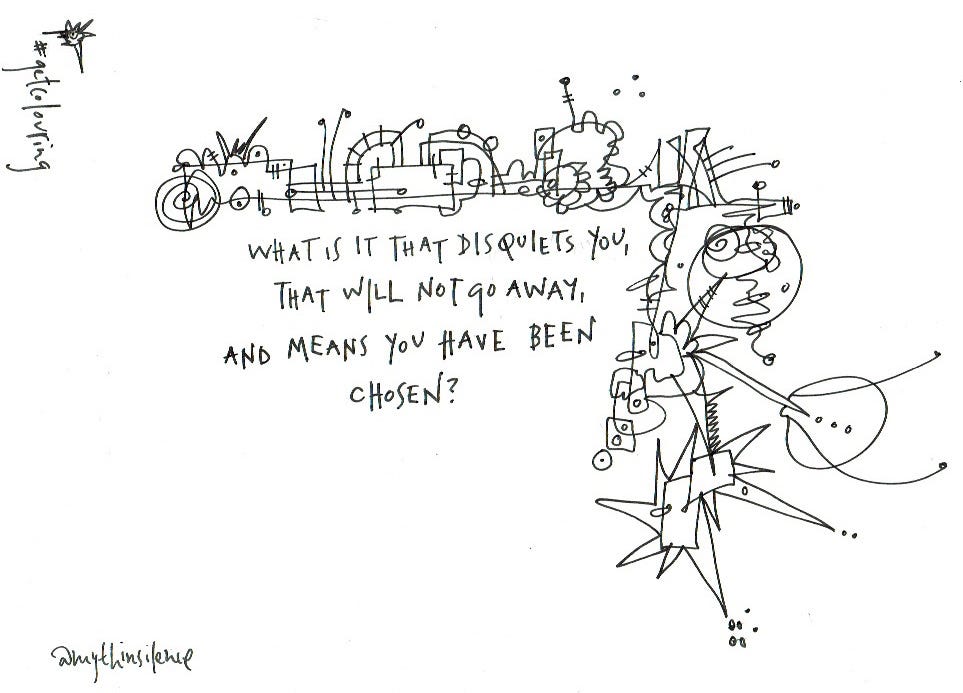 #getcolouring
WHAT IS IT THAT DISQUIETS YOU,
THAT WILL NOT GO AWAY,
AND MEANS YOU HAVE BEEN
CHOSEN?
@mythinsilence